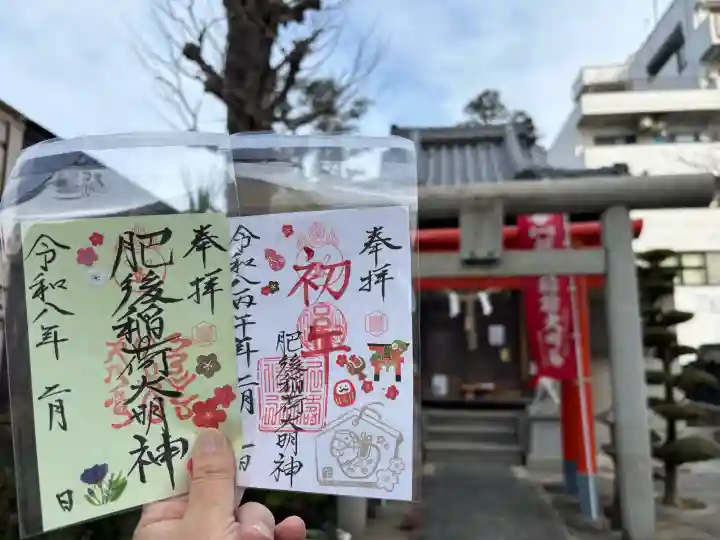 奉拝
肥後稲荷大明神
令和八年 二月 日
奉拝
初午
肥後稲荷大明神
令和八丙午年二月一日